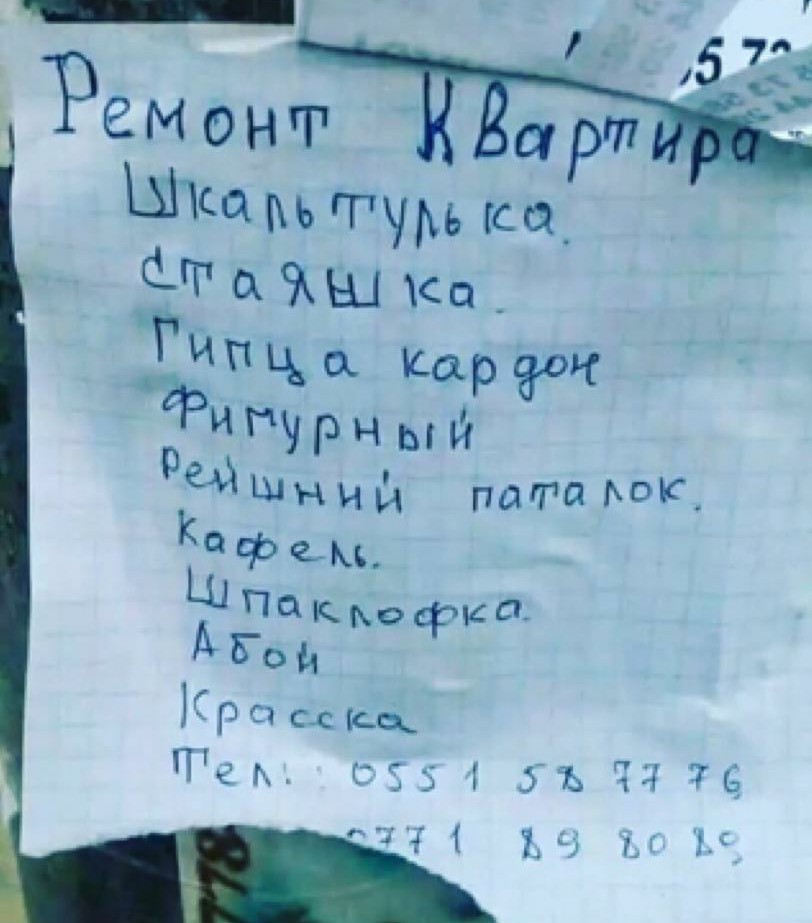 ,5 72
Ремонт Квартира
Шкальтулька.
Стаяшка.
Гипца кардон
Фигурный
Рейшний паталок.
Кафель.
Шпаклофка.
Абой
Красска
Тел: : 0551 58 77 76
0771 89 80 89